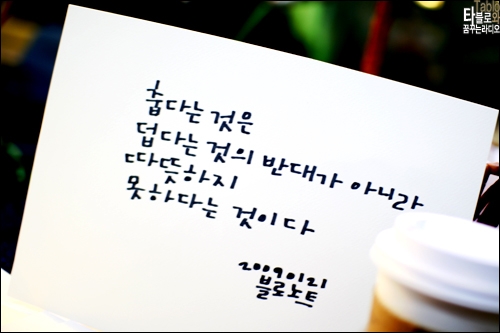 Tablo
타블로와
꿈꾸는라디오
춥다는 것은
덥다는 것의 반대가 아니라
따뜻하지
못하다는 것이다
20090121
블로노트